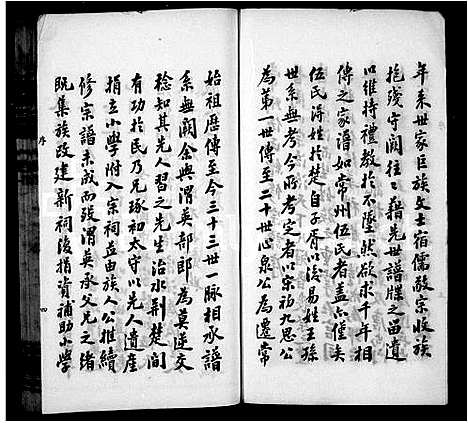 年來世家巨族文士宿儒敬宗收族
抱殘守闕往往藉先世譜牒之留遺
以維持禮教於不墜然欲求千年相
傳之家譜如常州伍氏者蓋亦僅矣
伍氏得姓於楚自子胥以後易姓王孫
世系無考今所考定者以宗初九思公
為第一世傳至二十世心泉公為遷常
始祖歷傳至今三十三世一脈相承譜
系無闕余與渭英部郎為莫逆交
稔知其先人習之先生治水荆楚間
有功於民乃兄琢初太守以先人遺產
捐立小學附入宗祠並由族人公推續
修宗譜未成而歿渭英承父兄之緒
既集族改建新祠復捐資補助小學
序
四